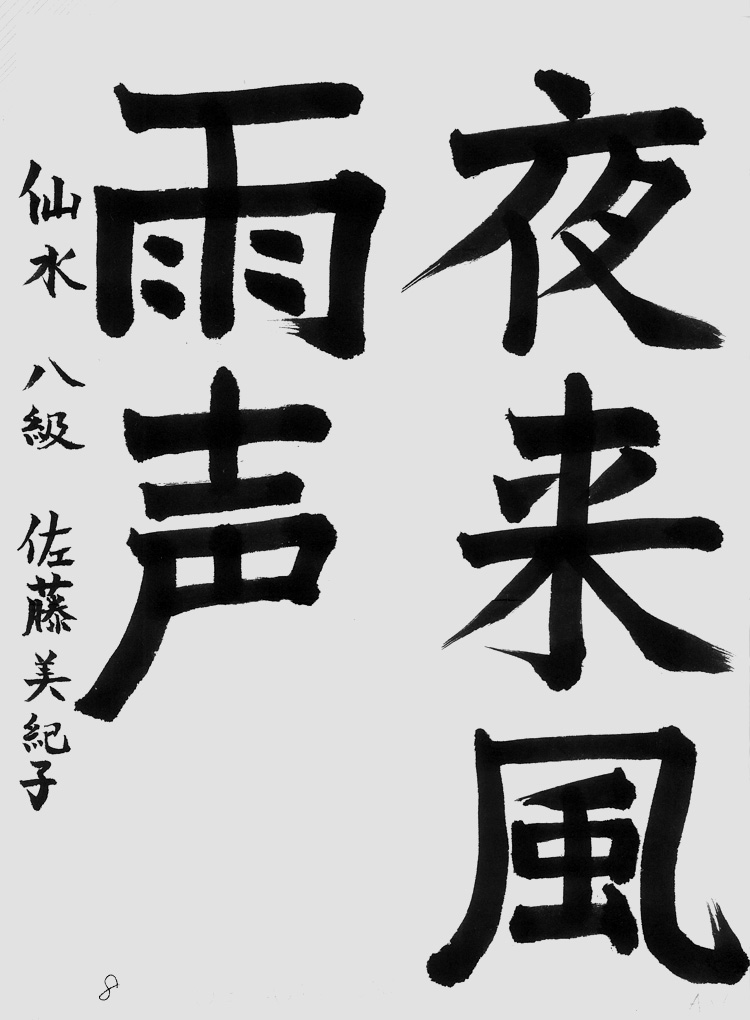 夜来風
雨声
仙水 八級 佐藤美紀子
8